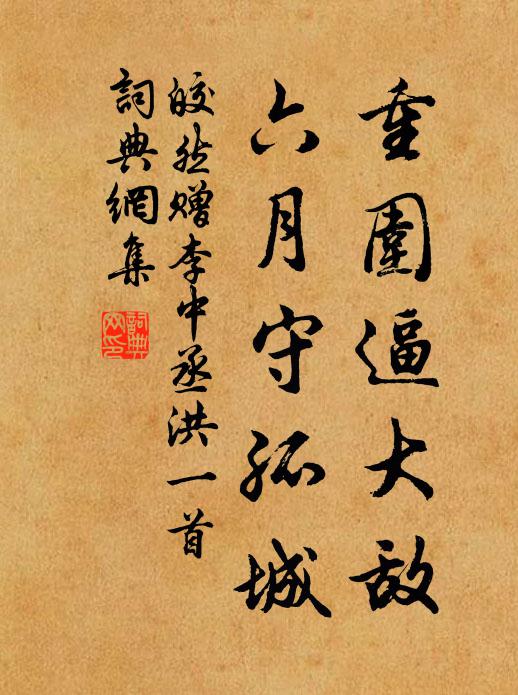 重圍逼大敵
六月守孤城
皎然贈李中丞洪一首
詞典網集
詞典網印